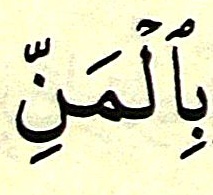 بِٱلۡمَنِّ